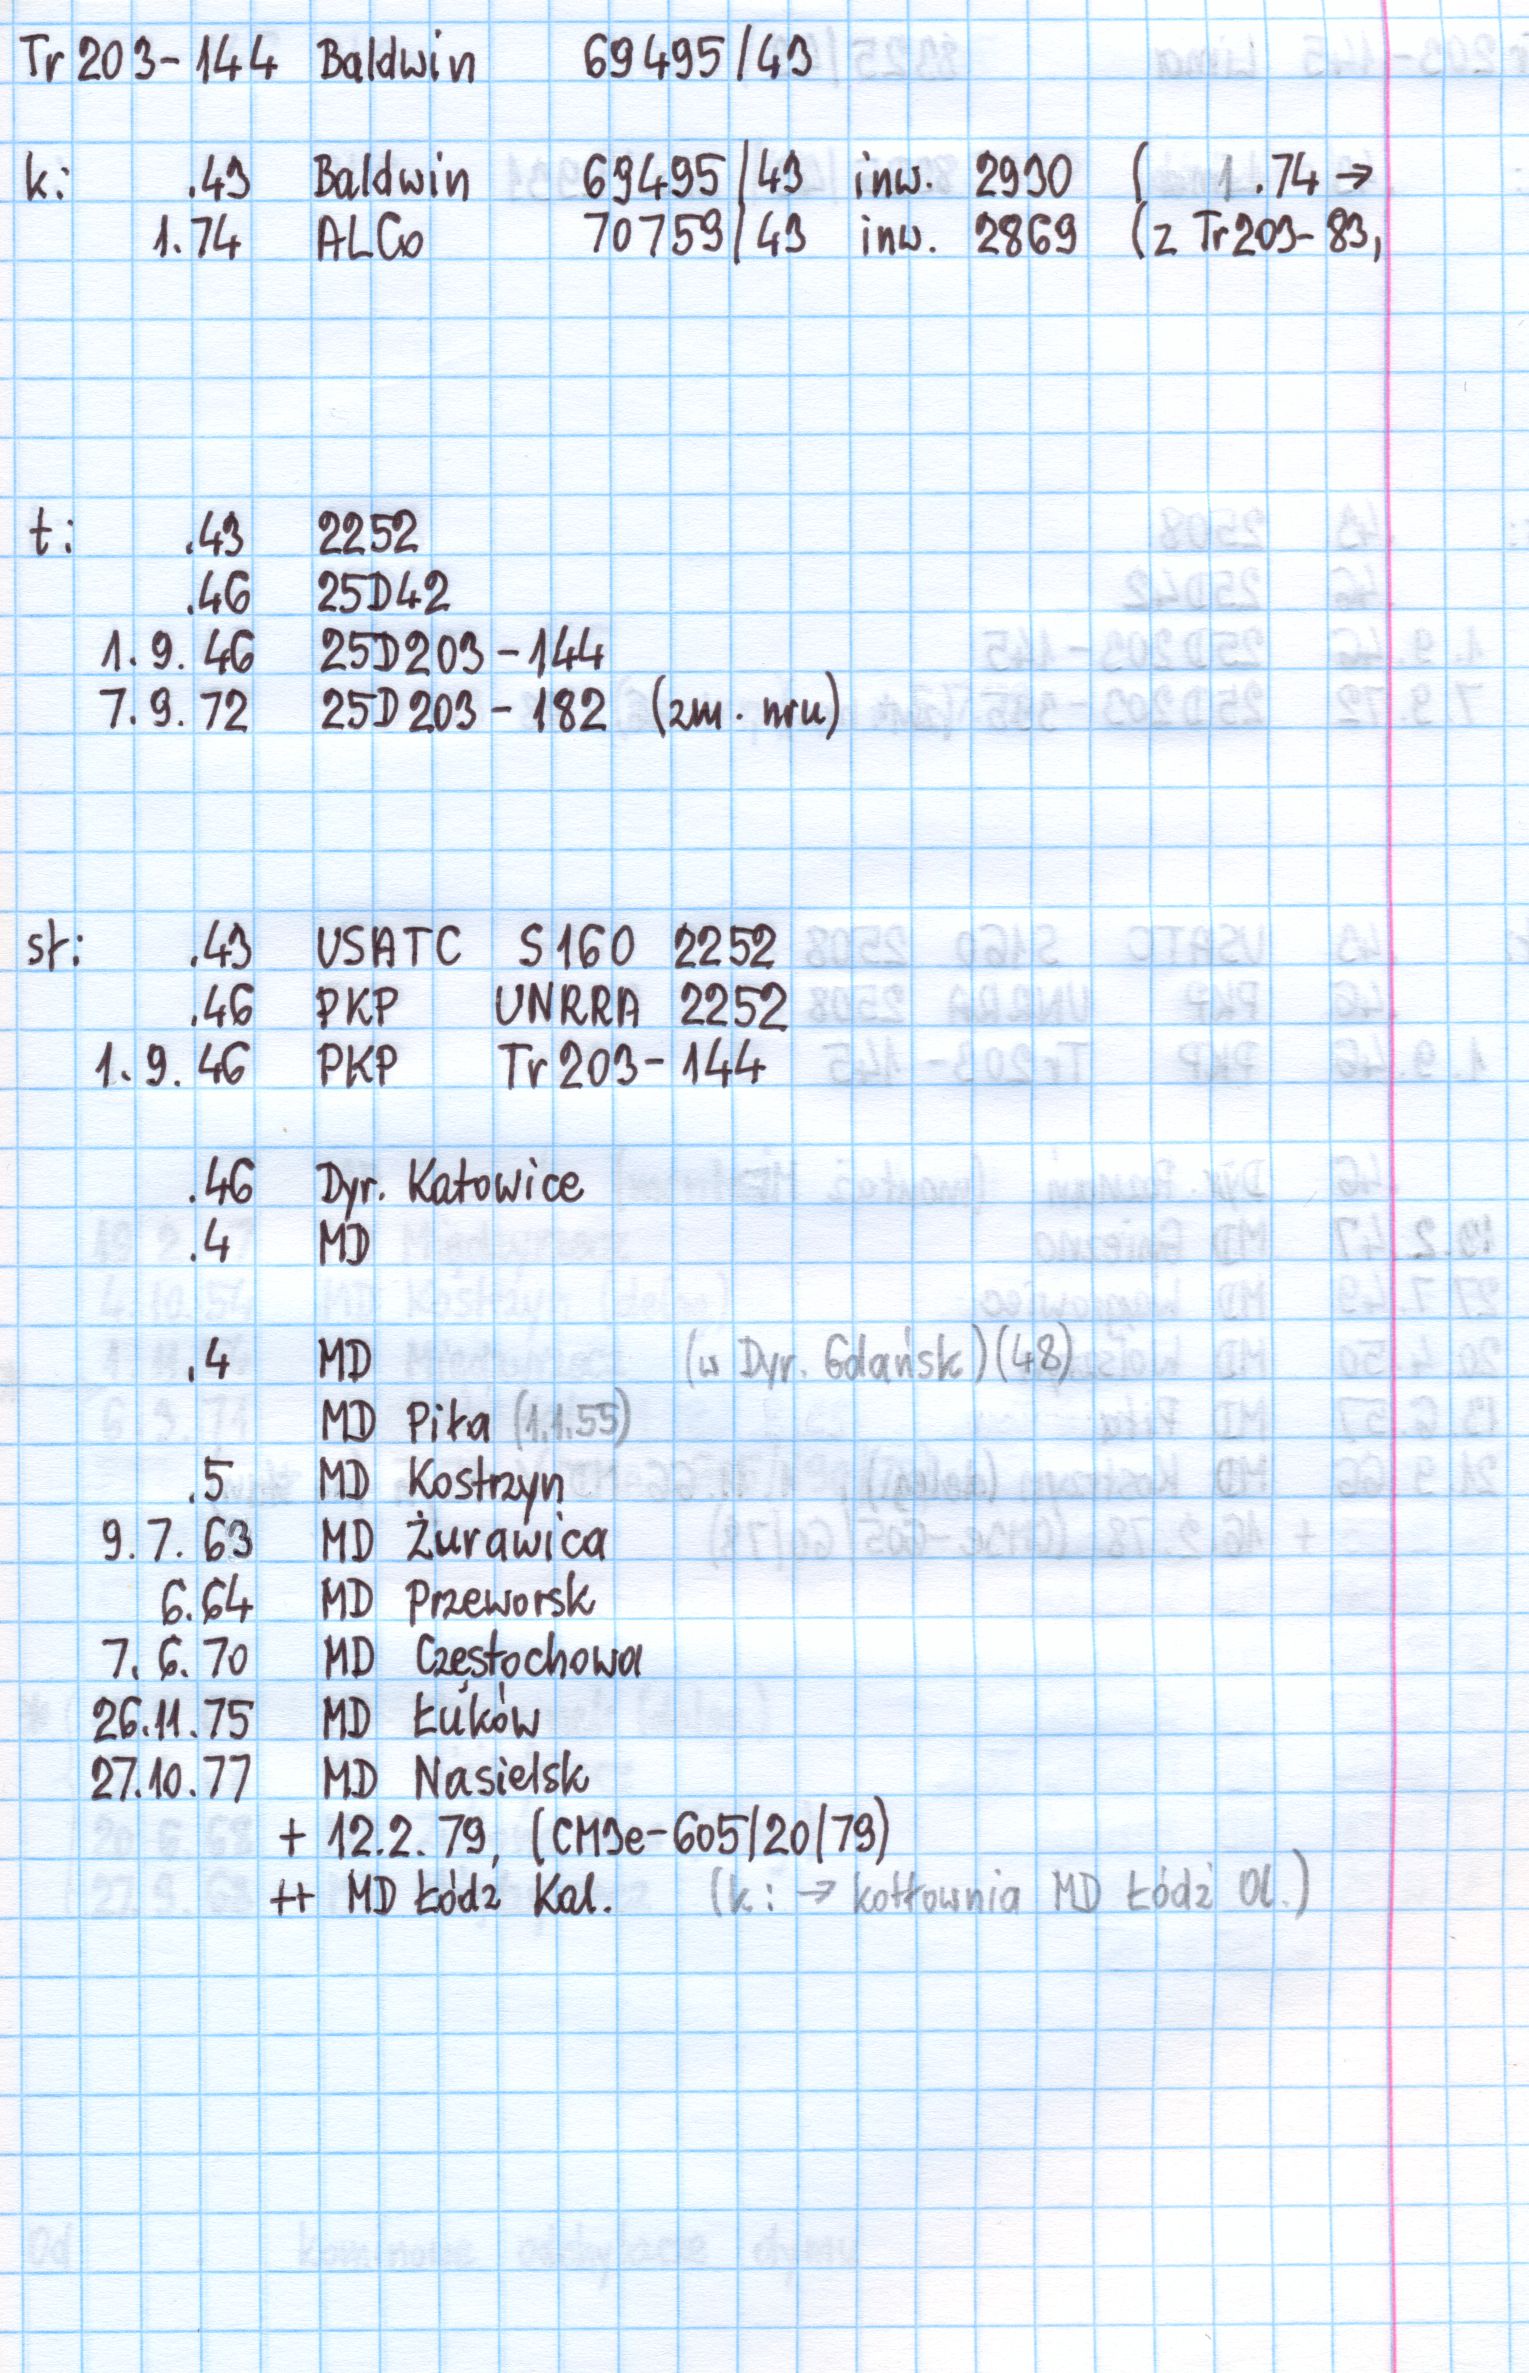 Tr203-144 Baldwin 69495/43
k: .43 Baldwin 69495/43 inw. 2930 ( 1.74 →
1.74 ALCo 70759/43 inw. 2869 (z Tr203-83,
t: .43 2252
.46 25D42
1.9.46 25D203-144
7.9.72 25D203-182 (zm. nru)
st: .43 USATC S160 2252
.46 PKP UNRRA 2252
1.9.46 PKP Tr203-144
.46 Dyr. Katowice
.4 MD
.4 MD (w Dyr. Gdańsk)(48)
MD Piła (1.1.55)
.5 MD Kostrzyn
9.7.63 MD Żurawica
6.64 MD Przeworsk
7.6.70 MD Częstochowa
26.11.75 MD Łuków
27.10.77 MD Nasielsk
+ 12.2.79, (CM3e-605/20/79)
++ MD Łódź Kal. (k: → kotłownia MD Łódź Ol.)